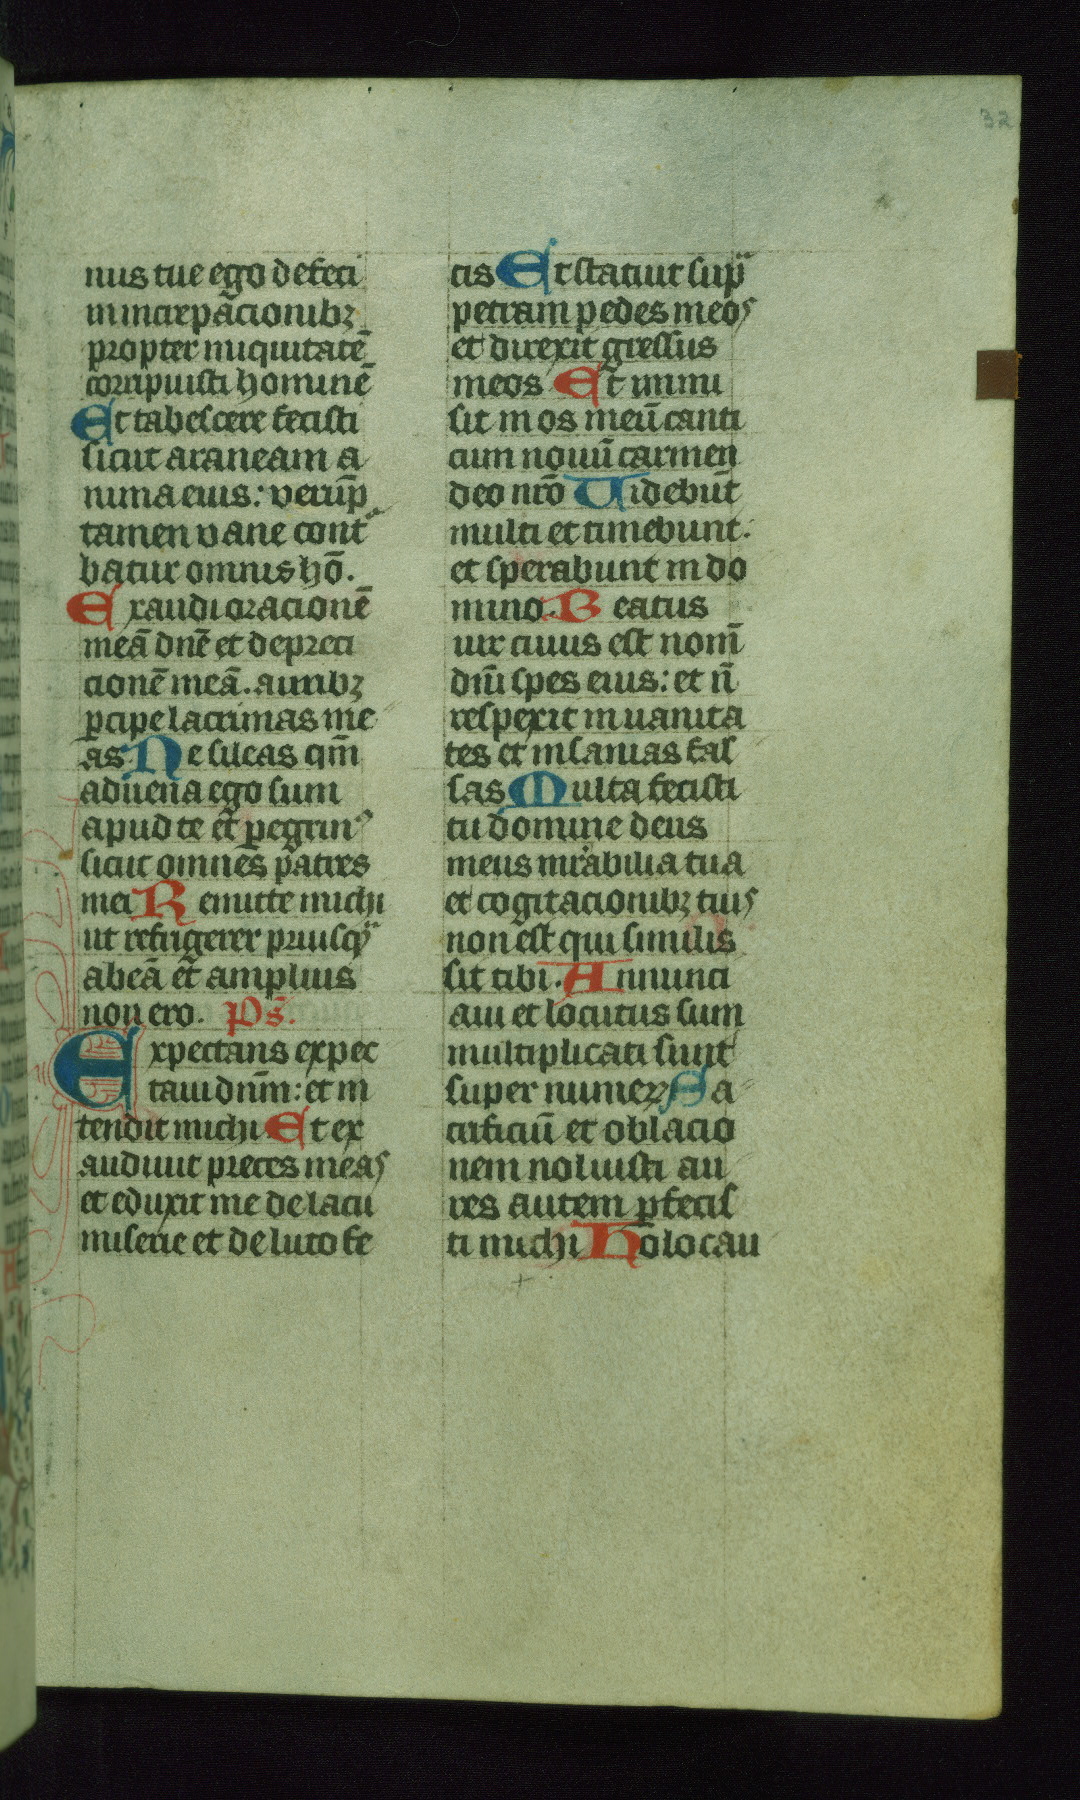 32
nus tue ego defeci
in increpacionibꝫ
propter iniquitatē
corripuisti hominē
Et tabescere fecisti
sicut araneam a
nima eius: verūp
tamen vane cont
batur omnis hō.
Exaudi oracionē
meā dnē et depreci
cionē meā. auribꝫ
ꝑcipe lacrimas me
as Ne sileas qm̄
aduena ego sum
apud te et ꝑegrinꝰ
sicut omnes patres
mei Remitte michi
ut refrigerer priusqᷓ
abeā et amplius
non ero. Ps̄.
Expectans expec
taui dnm̄: et in
tendit michi Et ex
audiuit preces meas
et eduxit me de lacu
miserie et de luto fe
cis Et statuit supᷓ
petram pedes meos
et direxit gressus
meos Et inmi
sit in os meū canti
cum nouū carmen
deo nrō Uidebūt
multi et timebunt:
et sperabunt in do
mino. Beatus
uir cuius est nom̄
dn̄i spes eius: et n̄
respexit in uanita
tes et insanias fal
sas Multa fecisti
tu domine deus
meus mirabilia tua
et cogitacionibꝫ tuis
non est qui similis
sit tibi. Annunci
aui et locutus sum
multiplicati sunt
super numeꝝ Sa
crificiū et oblacio
nem noluisti au
res autem ꝑfecis
ti michi Holocau